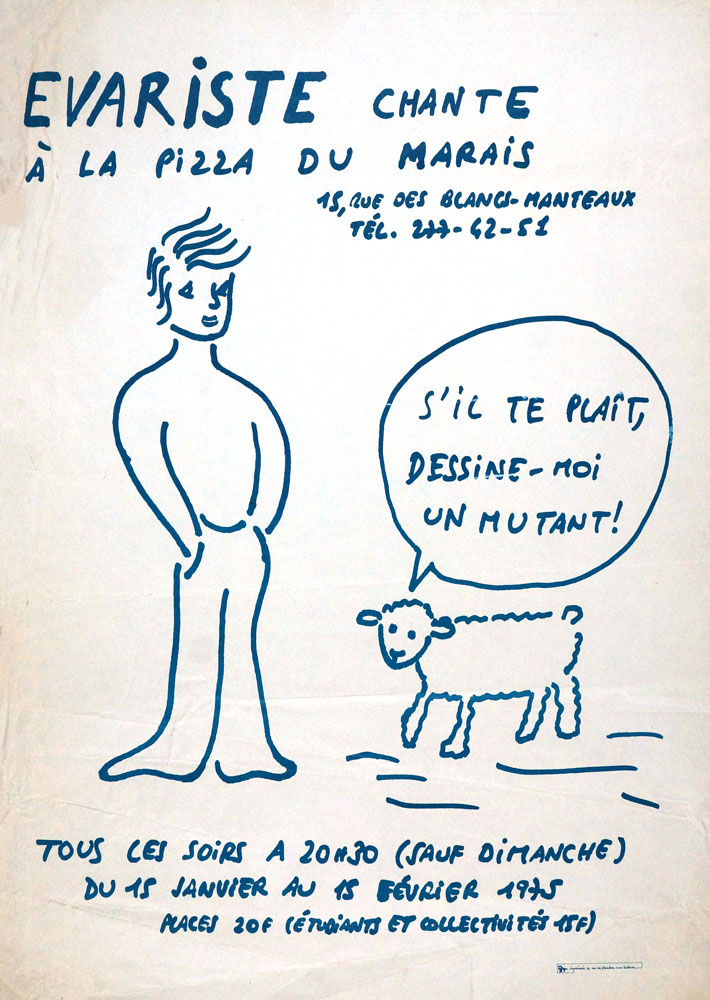 EVARiSTE CHANTE
À LA PiZZA DU MARAiS
15, RUE DES BLANCS-MANTEAUX
TÉL. 277-42-51
S'iL TE PLAÎT,
DESSiNE-MOi
UN MUTANT!
TOUS LES SOiRS A 20H30 (SAUF DiMANCHE)
DU 15 JANViER AU 15 FÉVRiER 1975
PLACES 20F (ÉTUDiANTS ET COLLECTiViTÉS 15F)